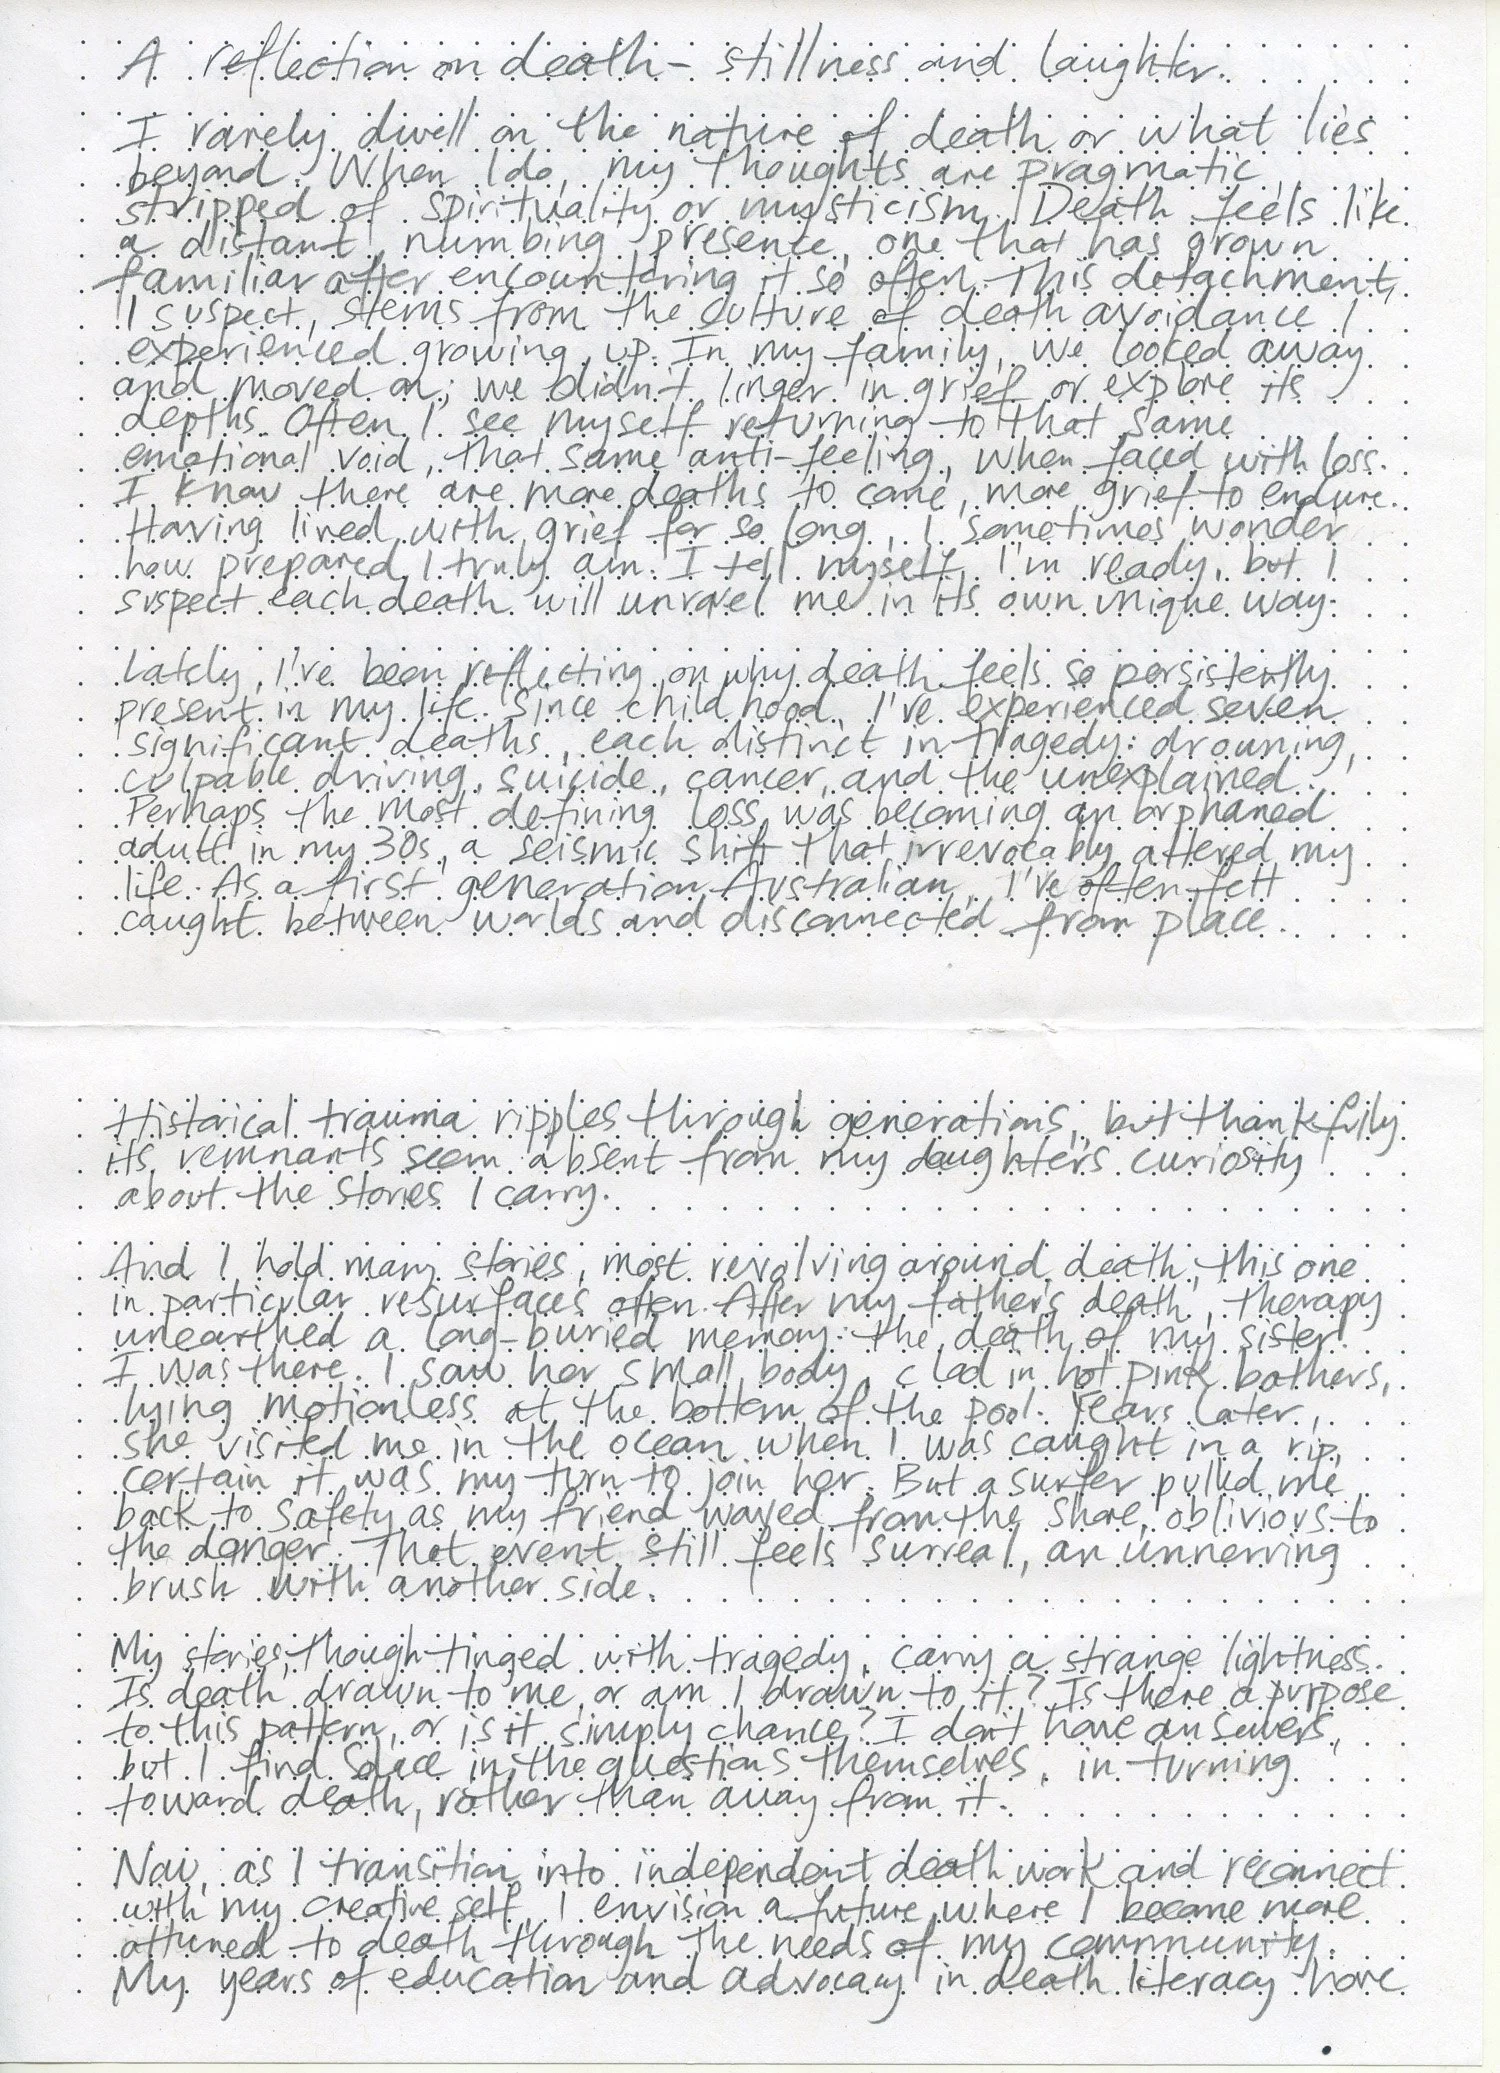 A reflection on death - stillness and laughter.
I rarely dwell on the nature of death or what lies
beyond. When I do, my thoughts are pragmatic,
stripped of spirituality or mysticism. Death feels like
a distant, numbing presence, one that has grown
familiar after encountering it so often. This detachment,
I suspect, stems from the culture of death avoidance I
experienced growing up. In my family, we looked away
and moved on; we didn't linger in grief or explore its
depths. Often I see myself returning to that same
emotional void, that same anti-feeling, when faced with loss.
I know there are more deaths to come, more grief to endure.
Having lived with grief for so long, I sometimes wonder
how prepared I truly am. I tell myself I'm ready, but I
suspect each death will unravel me in its own unique way.
Lately, I've been reflecting on why death feels so persistently
present in my life. Since childhood, I've experienced seven
significant deaths, each distinct in tragedy: drowning,
culpable driving, suicide, cancer, and the unexplained.
Perhaps the most defining loss was becoming an orphaned
adult in my 30s, a seismic shift that irrevocably altered my
life. As a first generation Australian, I've often felt
caught between worlds and disconnected from place.
Historical trauma ripples through generations, but thankfully
its remnants seem absent from my daughter's curiosity
about the stories I carry.
And I hold many stories, most revolving around death, this one
in particular resurfaces often. After my father's death, therapy
unearthed a long-buried memory: the death of my sister.
I was there. I saw her small body, clad in hot pink bathers,
lying motionless at the bottom of the pool. Years later,
she visited me in the ocean when I was caught in a rip,
certain it was my turn to join her. But a surfer pulled me
back to safety as my friend waved from the shore, oblivious to
the danger. That event still feels surreal, an unnerving
brush with another side.
My stories, though tinged with tragedy, carry a strange lightness.
Is death drawn to me, or am I drawn to it? Is there a purpose
to this pattern, or is it simply chance? I don't have answers,
but I find solace in the questions themselves, in turning
toward death, rather than away from it.
Now, as I transition into independent death work and reconnect
with my creative self, I envision a future where I become more
attuned to death through the needs of my community.
My years of education and advocacy in death literacy have